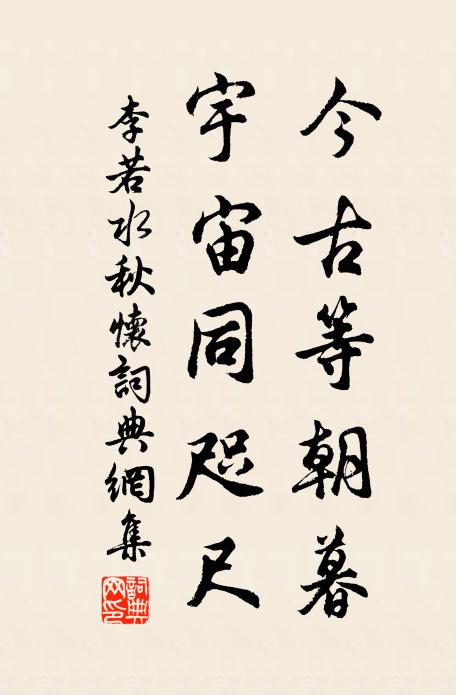 今古等朝暮
宇宙同咫尺
李若水秋懷詞典網集
詞典网印